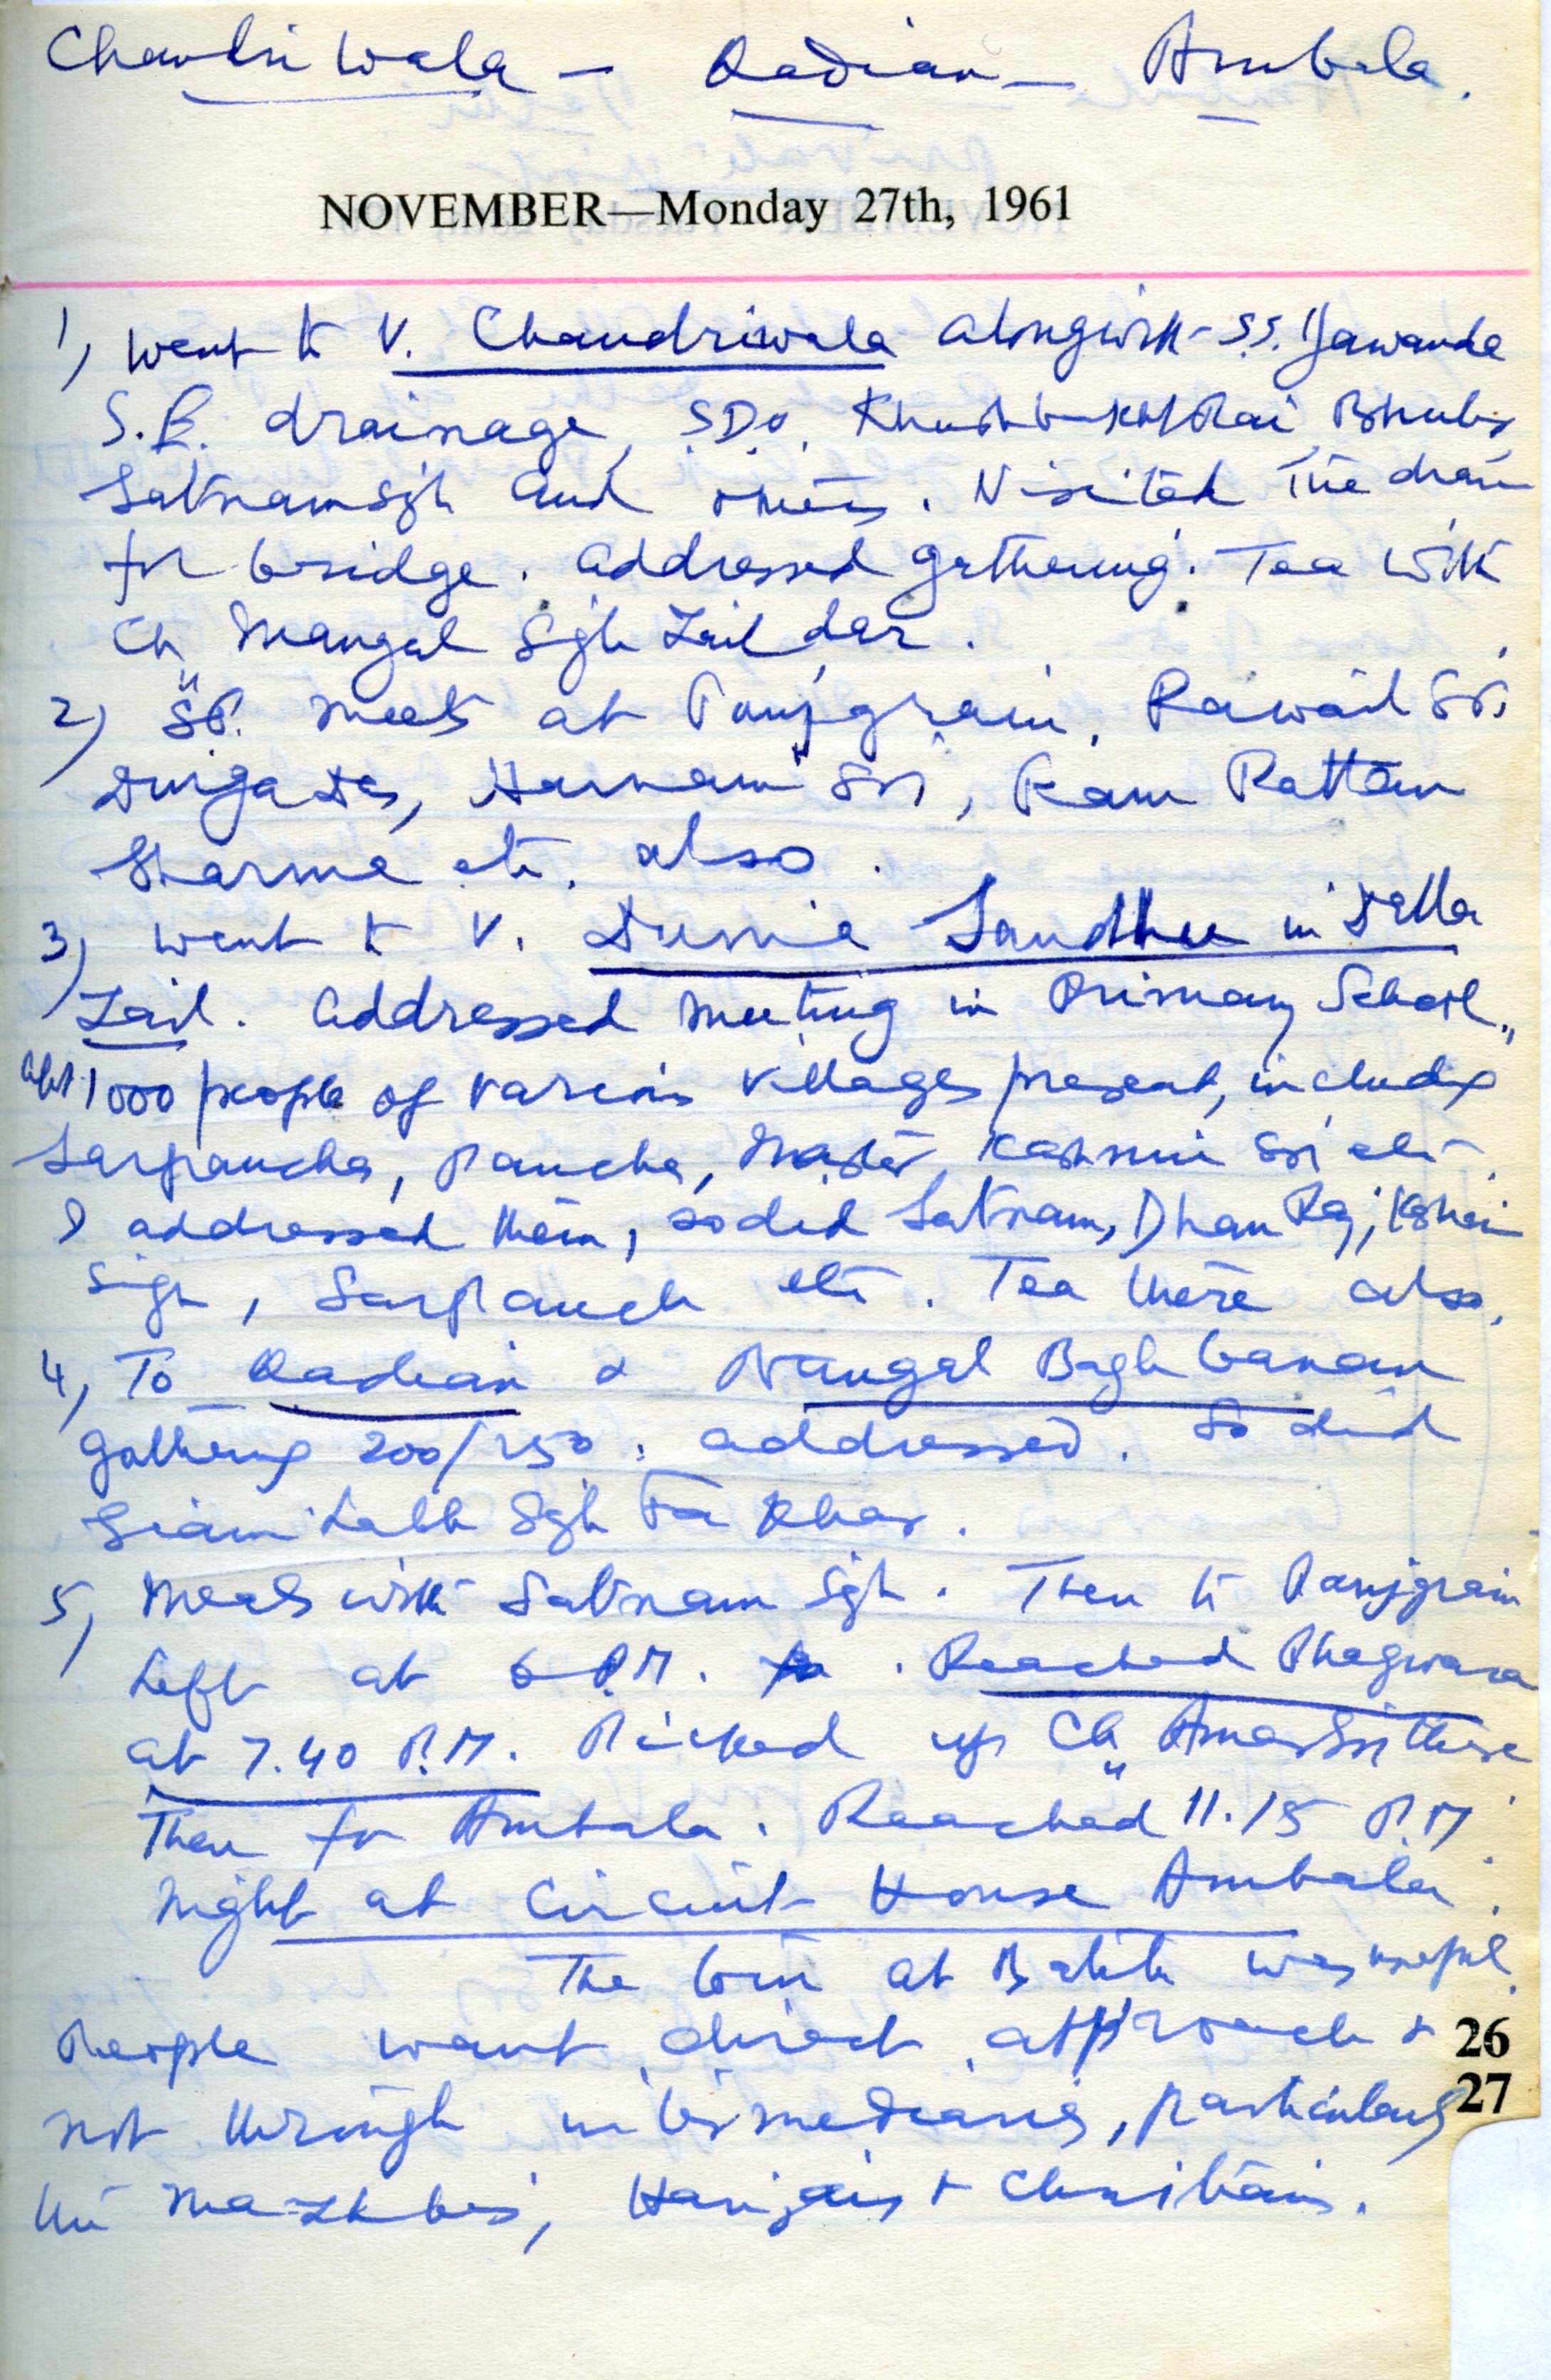 Chandriwala - Qadian - Ambala.
NOVEMBER—Monday 27th, 1961
1) Went to V. Chandriwala alongwith S.S. Jawanda
S.E. drainage, S.D.O. Rai
Satnam Sgh and others. Visited the drain
for bridge. Addressed gathering. Tea with
Ch. Mangal Sgh Zaildar.
2) meets at Panjgrain,
Durga Das, Harnam Sgh, Ram Rattan
Sharma etc. also.
3) Went to V. Sandhu in Dalla
Zail. Addressed meeting in Primary School,
abt 1000 people of various villages present, including
Sarpanches, Panches, Master etc.
I addressed them, so did Satnam, Dhan Raj,
Sigh, Sarpanch etc. Tea there also.
4) To Qadian & Nangal Baghbanan
gathering 200/250. addressed. So did
Giani Labh Sgh Fakhar.
5) Meals with Satnam Sgh. Then to Panjgrain
Left at 6 P.M. . Reached Phagwara
at 7.40 P.M. Picked up Ch. Amar Sgh there
Then for Ambala. Reached 11.15 P.M.
Night at Circuit House Ambala.
The tour at was useful.
People want direct approach & 26
not through intermediaries, particularly 27
the Mazhbis, Harijans & Christians.